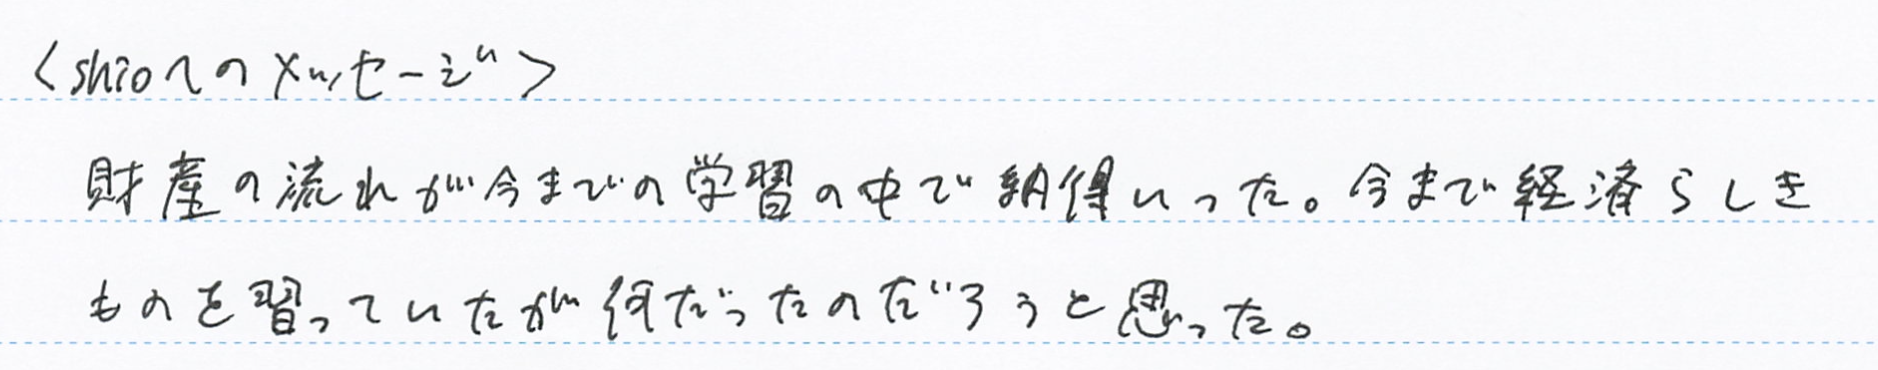 <shioへのメッセージ>
財産の流れが今までの学習の中で納得いった。今まで経済らしき
ものを習っていたが何だったのだろうと思った。